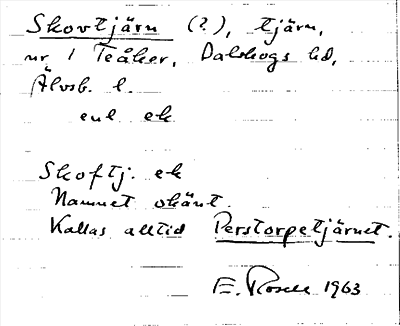 Skovtjärn (?), tjärn,
nr 1 Teåker, Dalskogs hd,
Älvsb. l.
enl ek
Skoftj. ek
Namnet okänt.
Kallas alltid Perstorpetjärnet.
E. Rosell 1963